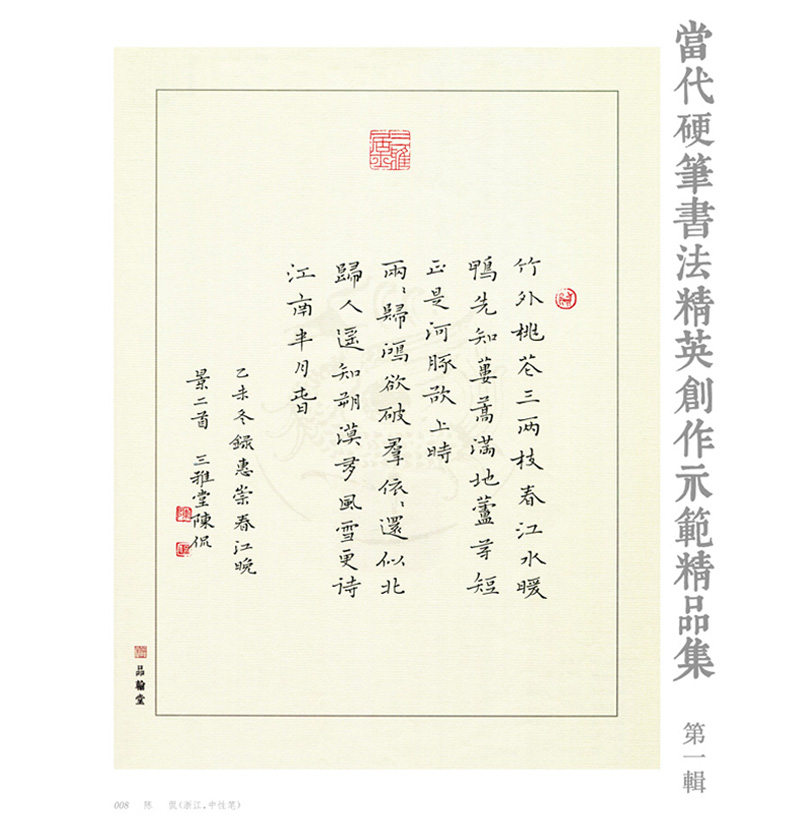 當代硬筆書法精英創作示範精品集
第一輯
竹外桃花三两枝春江水暖
鴨先知蔞蒿满地蘆芽短
正是河豚欲上時
兩、歸鴻欲破羣依、還似北
歸人遥知朔漠多風雪更待
江南半月春
乙未冬録惠崇春江晚
景二首 三雅堂陳侃
品翰堂
008 陈 侃(浙江,中性笔)